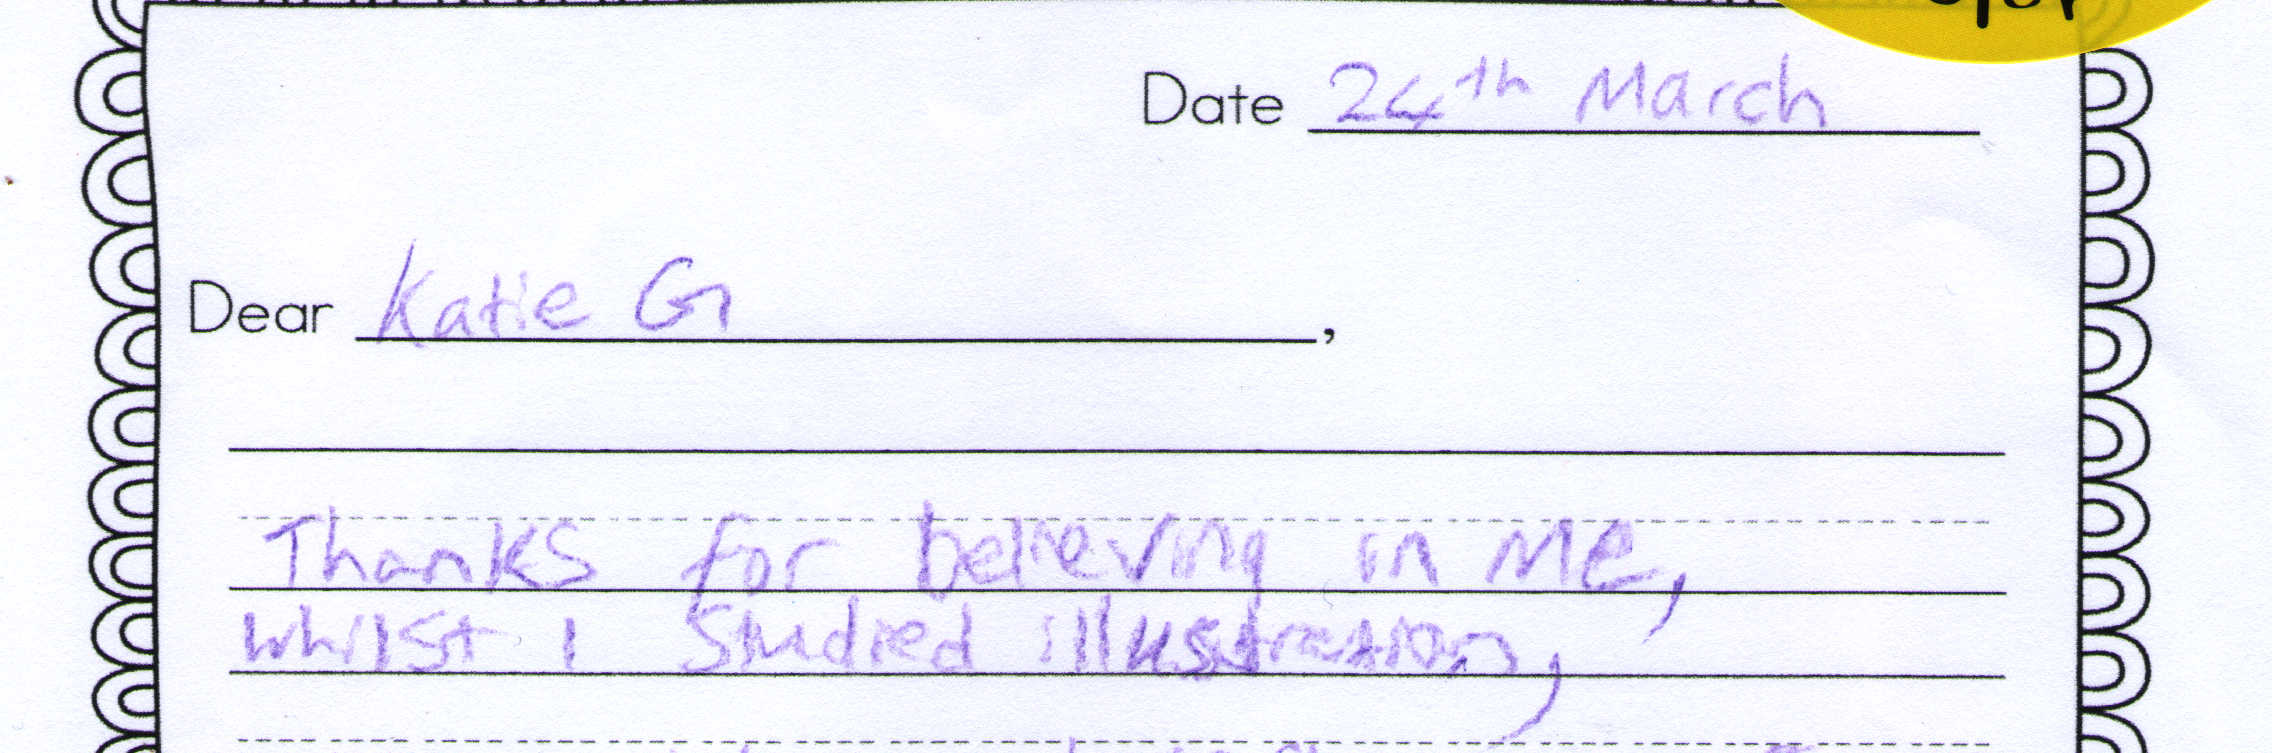 Date 24th March
Dear Katie G,
Thanks for believing in me,
whilst I studied illustration,